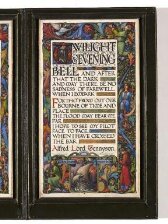 TWILIGHT
& EVENING
BELL AND AFTER
THAT THE DARK
AND MAY THERE BE NO
SADNESS OF FAREWELL
WHEN I EMBARK
FOR THO FROM OUT OUR
BOURNE OF TIME AND
PLACE
THE FLOOD MAY BEAR ME
FAR
I HOPE TO SEE MY PILOT
FACE TO FACE
WHEN I HAVE CROSSED
THE BAR
Alfred Lord Tennyson